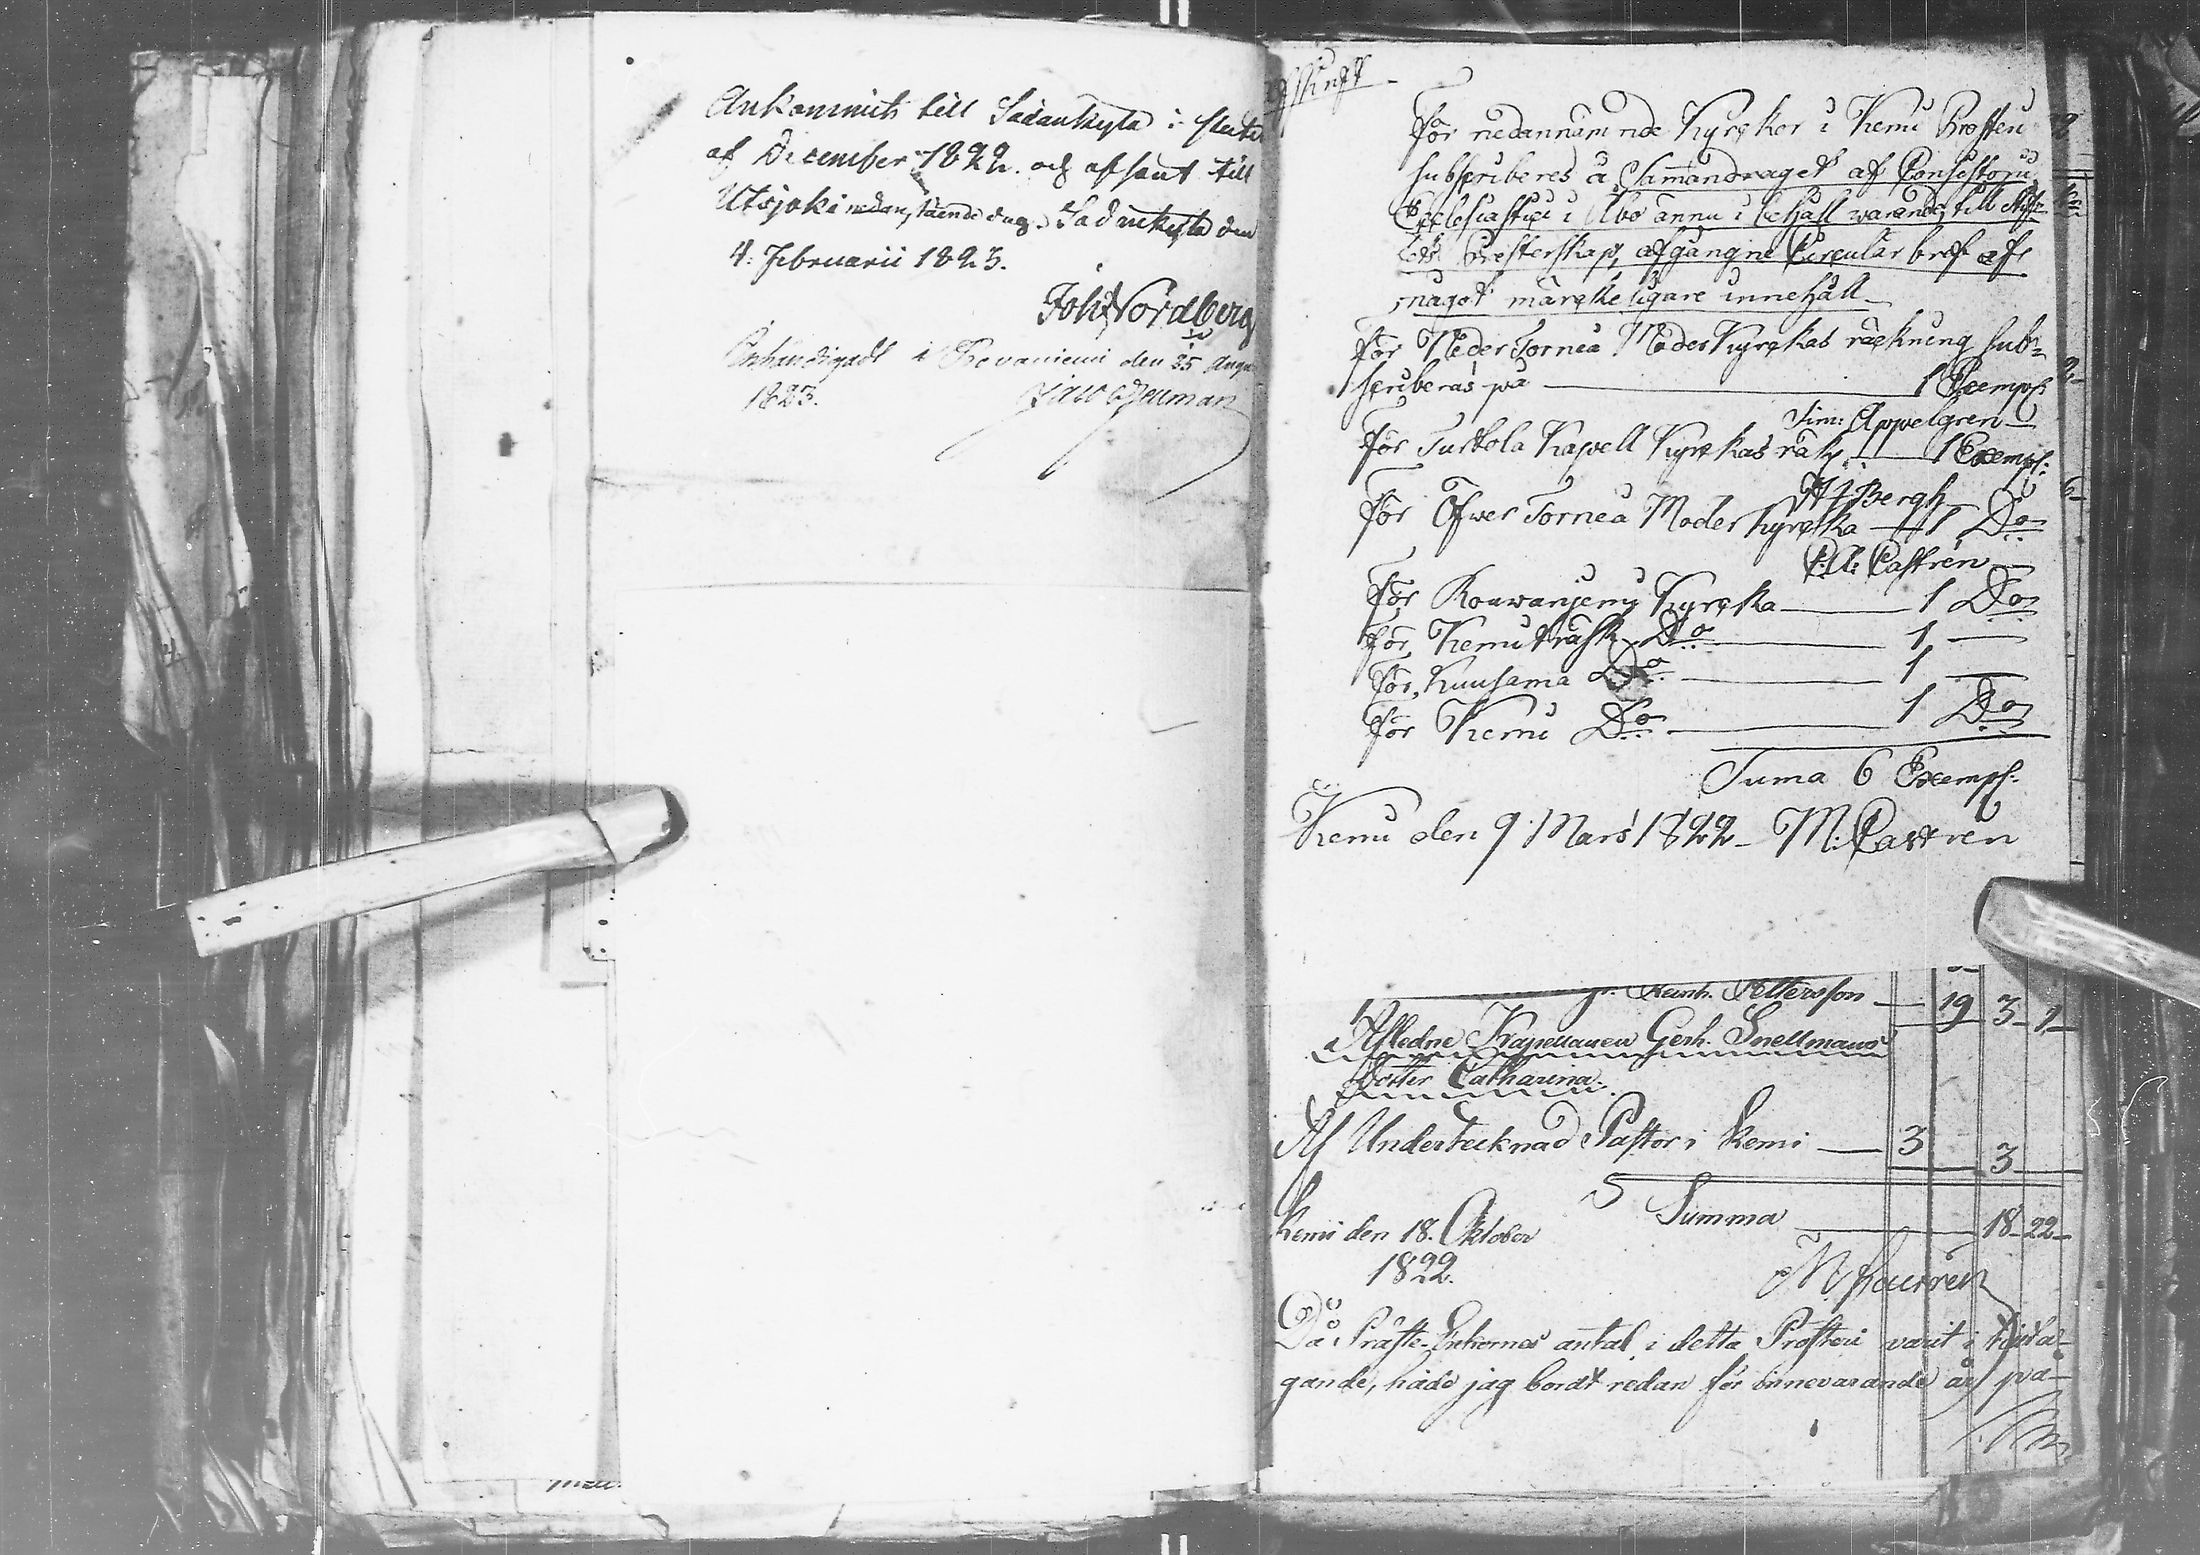 Ankommit till Sodankylä i slutet
af December 1822. och afsänt till
Utsjoki nedanstående dag. Sodankylä den
4. Februarii 1823.
Joh. Nordberg
Inhändigadt i Rovaniemi den 25 Augu
1823. Jacob Fellman
Afskrift
För nedannämnde Kyrckor i Kemi Prosteri
subscriberes å Sammandraget af Consistorii
Ecclesiastici i Åbo ännu i behåll warande, till Stif-
tets Presterskap, afgångne Circulär bref af
något märckeligare innehåll
För Neder Torneå Moder Kyrckas räckning sub-
scriberas på 1 Exempl:
Sim: Appelgren
För Turtola Kapell Kyrckas räk 1 Exempl:
H J Bergh
För Öfwer Torneå Moder Kyrcka 1 Do
Castrén
För Rouwanjemj Kyrcka 1 Do
För Kemiträsk Do 1 —
För Kuusamo Do 1 —
För Kemi Do 1 Do
Suma 6 Exempl:
Kemi den 9 Mars 1822 - M: Castrén
Henh. Pettersson — 19 3 - 1 -
Afledne Kapellanen Gerh. Snellmans
dotter Catharina.
Af Undertecknad Pastor i Kemi — 3 3
Summa — 18 - 22 -
Kemi den 18. Oktober
1822.
M Castrén
Då Präste-Enkornas antal i detta Prosteri varit i tilta-
gande, hade jag bordt redan för innevarande år på-